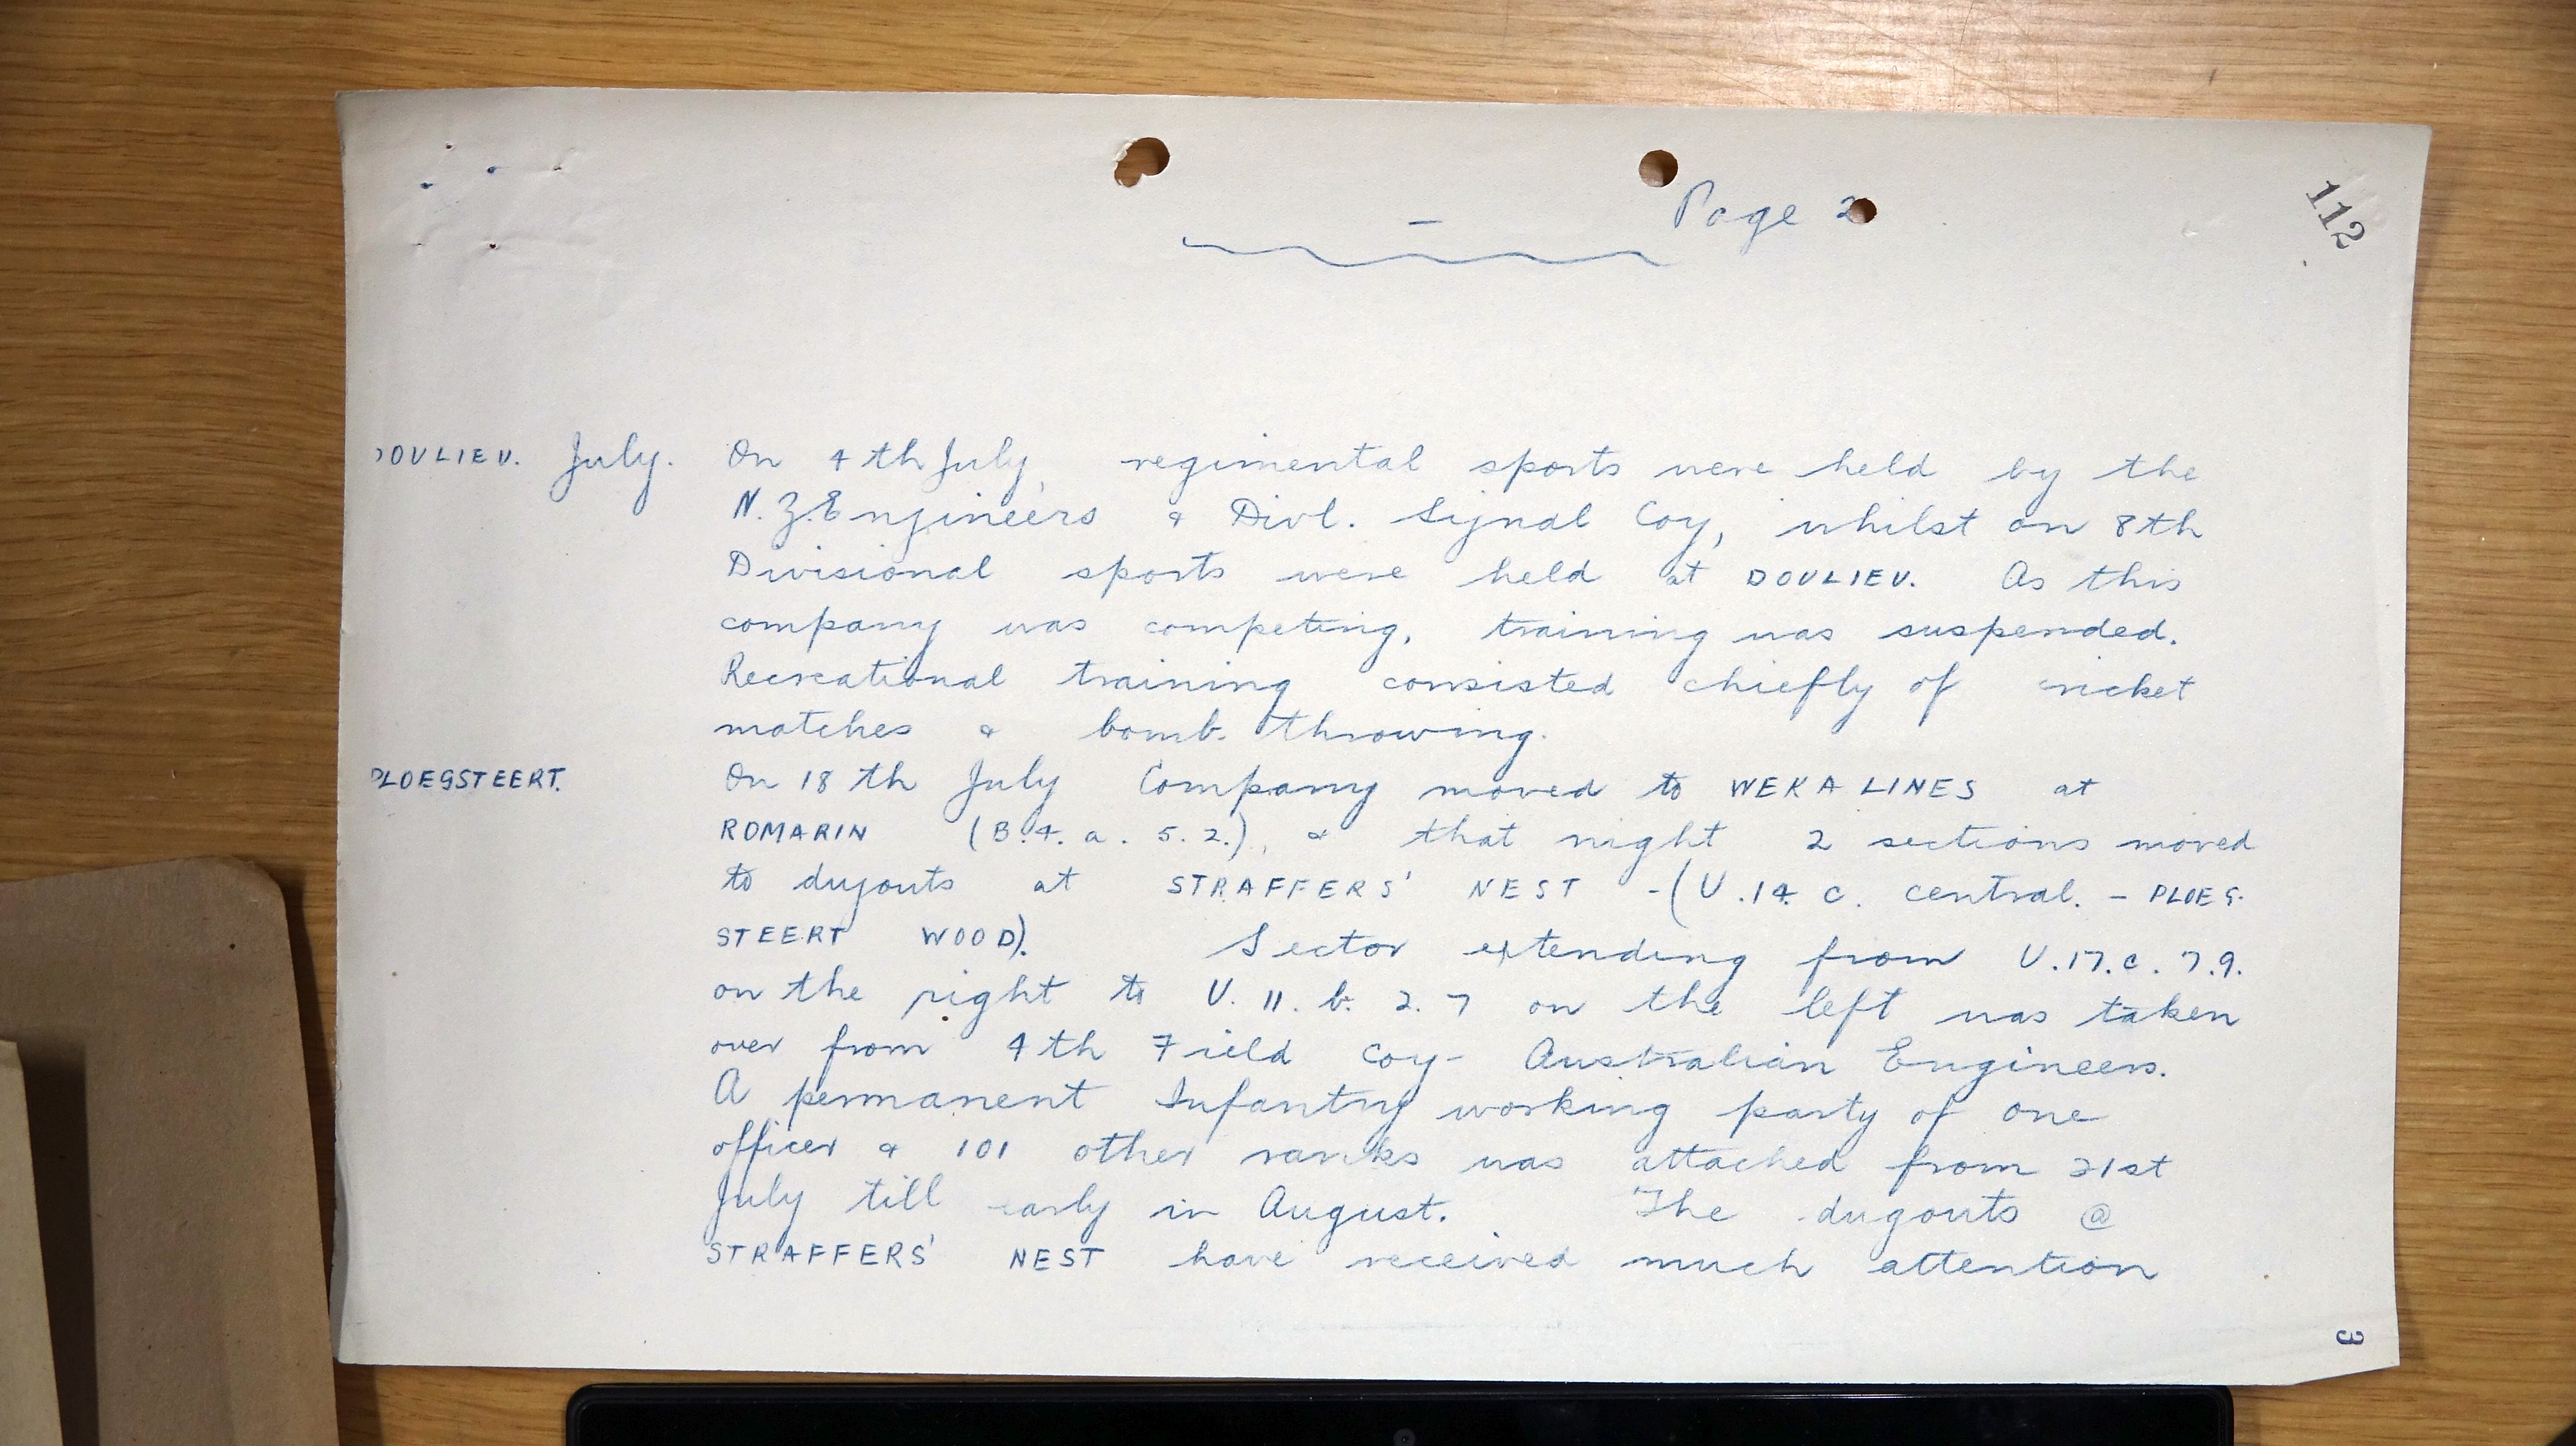 Page 2
112
DOULIEU. July. On 4th July, regimental sports were held by the
N.Z.Engineers & Divl. Signal Coy, whilst on 8th
Divisional sports were held at DOULIEU. As this
company was competing, training was suspended.
Recreational training consisted chiefly of cricket
matches & bomb throwing.
PLOEGSTEERT. On 18th July Company moved to WEKA LINES at
ROMARIN (B.4.a.5.2.), & that night 2 sections moved
to dugouts at STRAFFERS' NEST -(U.14.c. central. - PLOEG-
STEERT WOOD). Sector extending from U.17.c.7.9.
on the right to U.11.b.2.7 on the left was taken
over from 4th Field Coy- Australian Engineers.
A permanent Infantry working party of one
officer & 101 other ranks was attached from 21st
July till early in August. The dugouts @
STRAFFERS' NEST have received much attention
3